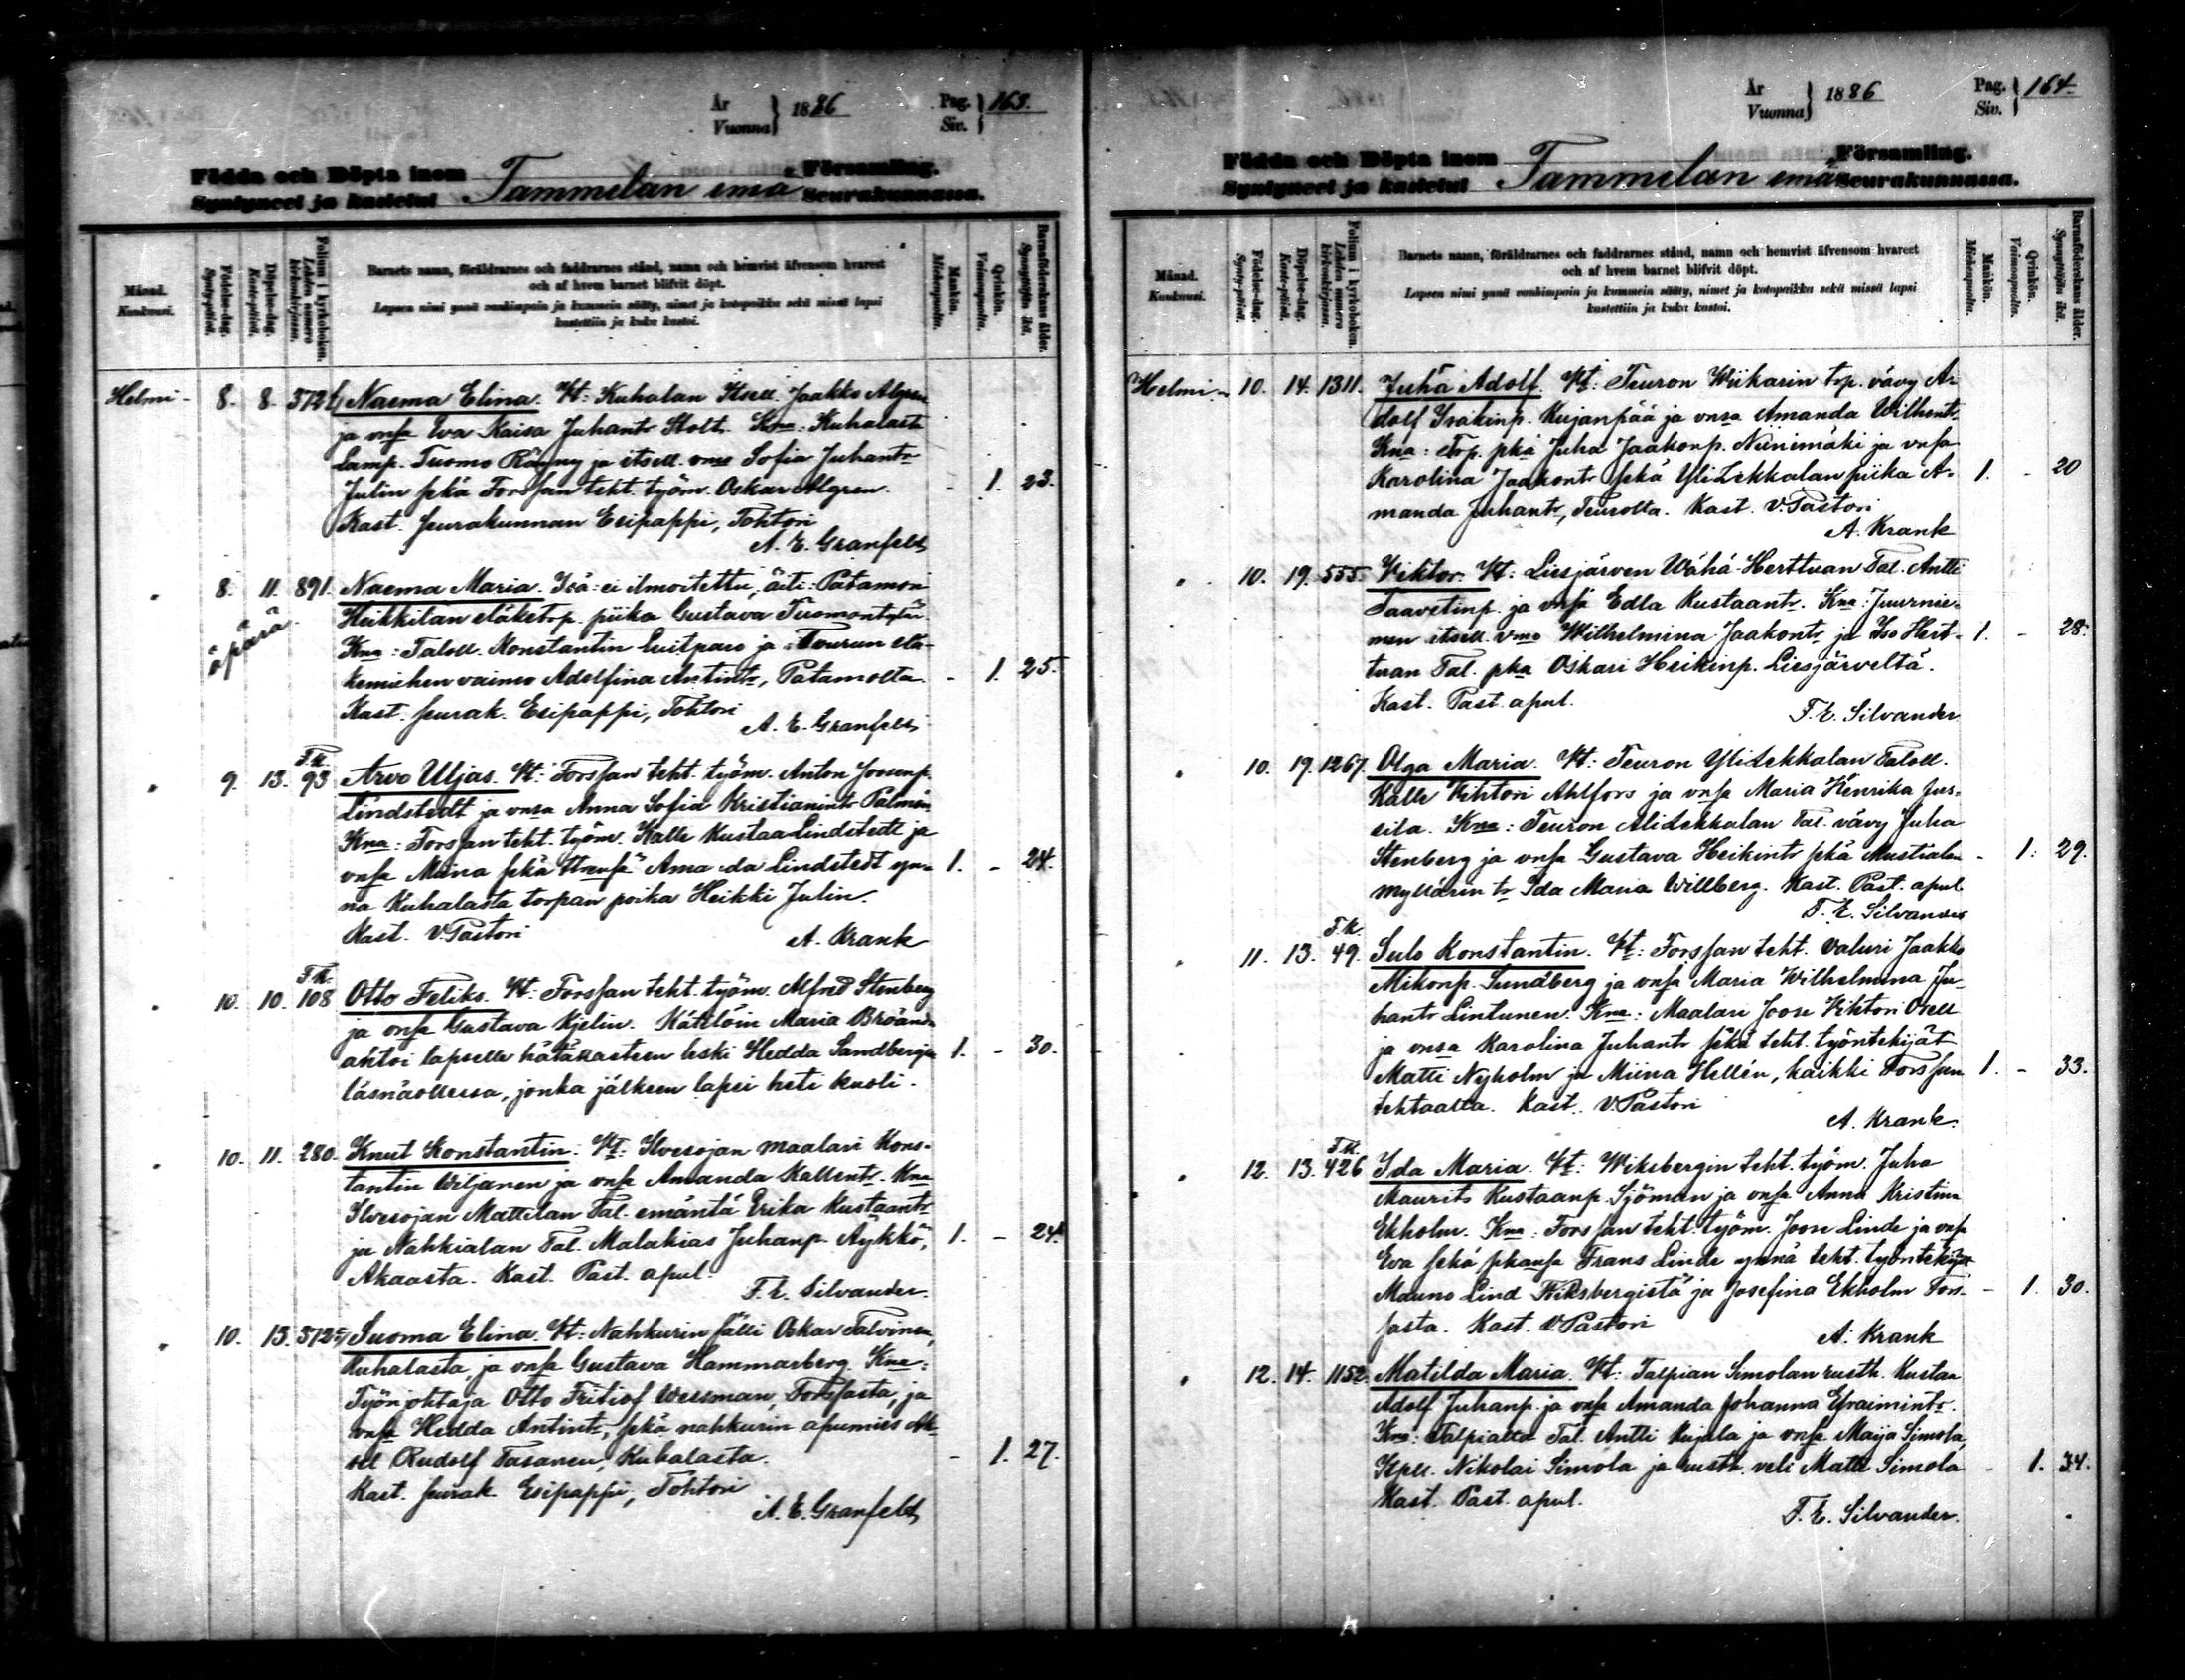 År
Vuonna } 1886
Pag.
Siv. } 163.
Födda och Döpta inom
Syntyneet ja kastetut Tammelan emä- Församling.
Seurakunnassa.
Månad.
Kuukausi.
Födelse-dag.
Synty-päivä.
Döpelse-dag.
Kaste-päivä.
Folium i kyrkoboken.
Lehden numero kirkonkirjassa.
Barnets namn, föräldrarnes och faddrarnes stånd, namn och hemvist äfvensom hvarest
och af hvem barnet blifvit döpt.
Lapsen nimi ynnä vanhimpain ja kummein sääty, nimet ja kotopaikka sekä missä lapsi
kastettiin ja kuka kastoi.
Mankön.
Miehenpuolta.
Qvinkön.
Vaimonpuolta.
Barnaföderskans ålder.
Synnyttäjän ikä.
Helmi- 8. 8. Naema Elina. Vt: Kuhalan Itsell. Jaakko Algren
ja vnsa Eva Kaisa Juhantr Stolt. Kna: Kuhalasta
Lamp. Tuomo Räyny ja itsell. vmo Sofia Juhantr
Julin sekä Forssan teht. työm. Oskar Algren. - 1. 23.
Kast. seurakunnan Esipappi, Tohtori
A. E. Granfelt
" 8. 11. 891. Naema Maria. Isä: ei ilmoitettu, äiti: Patamon
äpärä Heikkilän eläketorp. piika Gustava Tuomontytär.
Kna: Taloll. Konstantin ja Tourun elä-
kemiehen vaimo Adolfina Antintr, Patamolta. - 1. 25.
Kast. seurak. Esipappi, Tohtori
A. E. Granfelt
F.k.
" 9. 13. 93 Arvo Uljas. Vt: Forssan teht. työm. Anton Joosenp.
Lindstedt ja vnsa Anna Sofia Kristianintr Palmén
Kna: Forssan teht. työm. Kalle Kustaa Lindstedt ja
vnsa Miina sekä Amanda Lindstedt yn- 1. - 24.
nä Kuhalasta torpan poika Heikki Julin.
Kast. V. Pastori
A. Krank
F.k.
" 10. 10. 108 Otto Feliks. Vt: Forssan teht. työm. Alfred Stenberg
ja vnsa Gustava Kjelin. Kätilöin Maria
antoi lapselle hätäkasteen leski Hedda Sandbergin 1. - 30.
läsnäollessa, jonka jälkeen lapsi heti kuoli.
" 10. 11. 280. Knut Konstantin. Vt: Ilvesojan maalari Kons-
tantin Wiljanen ja vnsa Amanda Kallentr. Kna
Ilvesojan Mattilan Tal. emäntä Erika Kustaantr
ja Nahkialan Tal. Malakias Juhanp. Äykkö, 1. - 24.
Akaasta. Kast. Past. apul.
F. E. Silvander.
" 10. 13. Suoma Elina. Vt: Nahkurin sälli Oskar Talvinen,
Kuhalasta, ja vnsa Gustava Hammarberg. Kna:
Työnjohtaja Otto Fritiof Wessman, Forssasta, ja
vnsa Hedda Antintr, sekä nahkurin apumies Ak-
sel Rudolf Tasanen, Kuhalasta. - 1. 27.
Kast. seurak. Esipappi, Tohtori
A. E. Granfelt
År
Vuonna } 1886
Pag.
Siv. } 164.
Födda och Döpta inom
Syntyneet ja kastetut Tammelan emä- Församling.
Seurakunnassa.
Månad.
Kuukausi.
Födelse-dag.
Synty-päivä.
Döpelse-dag.
Kaste-päivä.
Folium i kyrkoboken.
Lehden numero kirkonkirjassa.
Barnets namn, föräldrarnes och faddrarnes stånd, namn och hemvist äfvensom hvarest
och af hvem barnet blifvit döpt.
Lapsen nimi ynnä vanhimpain ja kummein sääty, nimet ja kotopaikka sekä missä lapsi
kastettiin ja kuka kastoi.
Mankön.
Miehenpuolta.
Qvinkön.
Vaimonpuolta.
Barnaföderskans ålder.
Synnyttäjän ikä.
Helmi- 10. 14. 1311. Juha Adolf. Vt: Teuron Wiikarin torp. vävy A-
dolf Isakinp. Kujanpää ja vnsa Amanda Wilhentr.
Kna: Torp. pka Juha Jaakonp. Niinimäki ja vnsa
Karolina Jaakontr sekä YliLekkalan piika A- 1. - 20
manda Juhantr, Teurolta. Kast. V. Pastori
A. Krank
" 10. 19. 555. Viktor. Vt: Liesjärven Wähä-Herttuan Tal. Antti
Taavetinp. ja vnsa Edla Kustaantr. Kna: Juurnie-
men itsell. vmo Wilhelmina Jaakontr ja Iso Hert- 1. - 28.
tuan Tal. pka Oskari Heikinp. Liesjärveltä.
Kast. Past. apul.
F. E. Silvander
" 10. 19. 1267. Olga Maria. Vt: Teuron YliLekkalan Taloll.
Kalle Vihtori Ahlfors ja vnsa Maria Henrika Jus-
sila. Kna: Teuron AliLekkalan Tal. vävy Juha
Stenberg ja vnsa Gustava Heikintr sekä Mustialan - 1. 29.
myllärin tr Ida Maria Willberg. Kast. Past. apul.
F. E. Silvander
F.k.
" 11. 13. 49. Sulo Konstantin. Vt: Forssan teht. valuri Jaakko
Mikonp. Sundberg ja vnsa Maria Wilhelmina Ju-
hantr Lintunen. Kna: Maalari Joose Vihtori Osell
ja vnsa Karolina Juhantr sekä teht. työntekijät
Matti Nyholm ja Miina Hellén, kaikki Forssan 1. - 33.
tehtaalta. Kast. V. Pastori
A. Krank.
F.k.
" 12. 13. 426 Ida Maria. Vt: Wiksbergin teht. työm. Juha
Maurits Kustaanp. Sjöman ja vnsa Anna Kristina
Ekholm. Kna: Forssan teht. työm. Joose Linde ja vnsa
Eva sekä pkansa Frans Linde ynnä teht. työntekijät
Mauno Lind Wiksbergistä ja Josefina Ekholm Fors- - 1. 30.
sasta. Kast. V. Pastori
A. Krank
" 12. 14. 1152. Matilda Maria. Vt: Talpian Simolan rusth. Kustaa
Adolf Juhanp. ja vnsa Amanda Johanna Efraimintr.
Kna: Talpialta Tal. Antti Kujala ja vnsa Maija Simola,
Itsell. Nikolai Simola ja rusth. veli Matti Simola - 1. 34.
Kast. Past. apul.
F. E. Silvander.